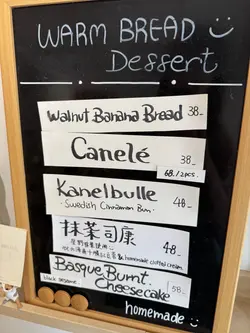 WARM BREAD
Dessert
Walnut Banana Bread 38-
Canelé 38-
68./2pcs.
Kanelbulle 48-
-Swedish Cinnamon Bun-
抹茶司康 48-
& homemade clotted cream
Basque Burnt
black sesame. Cheesecake 58-
homemade